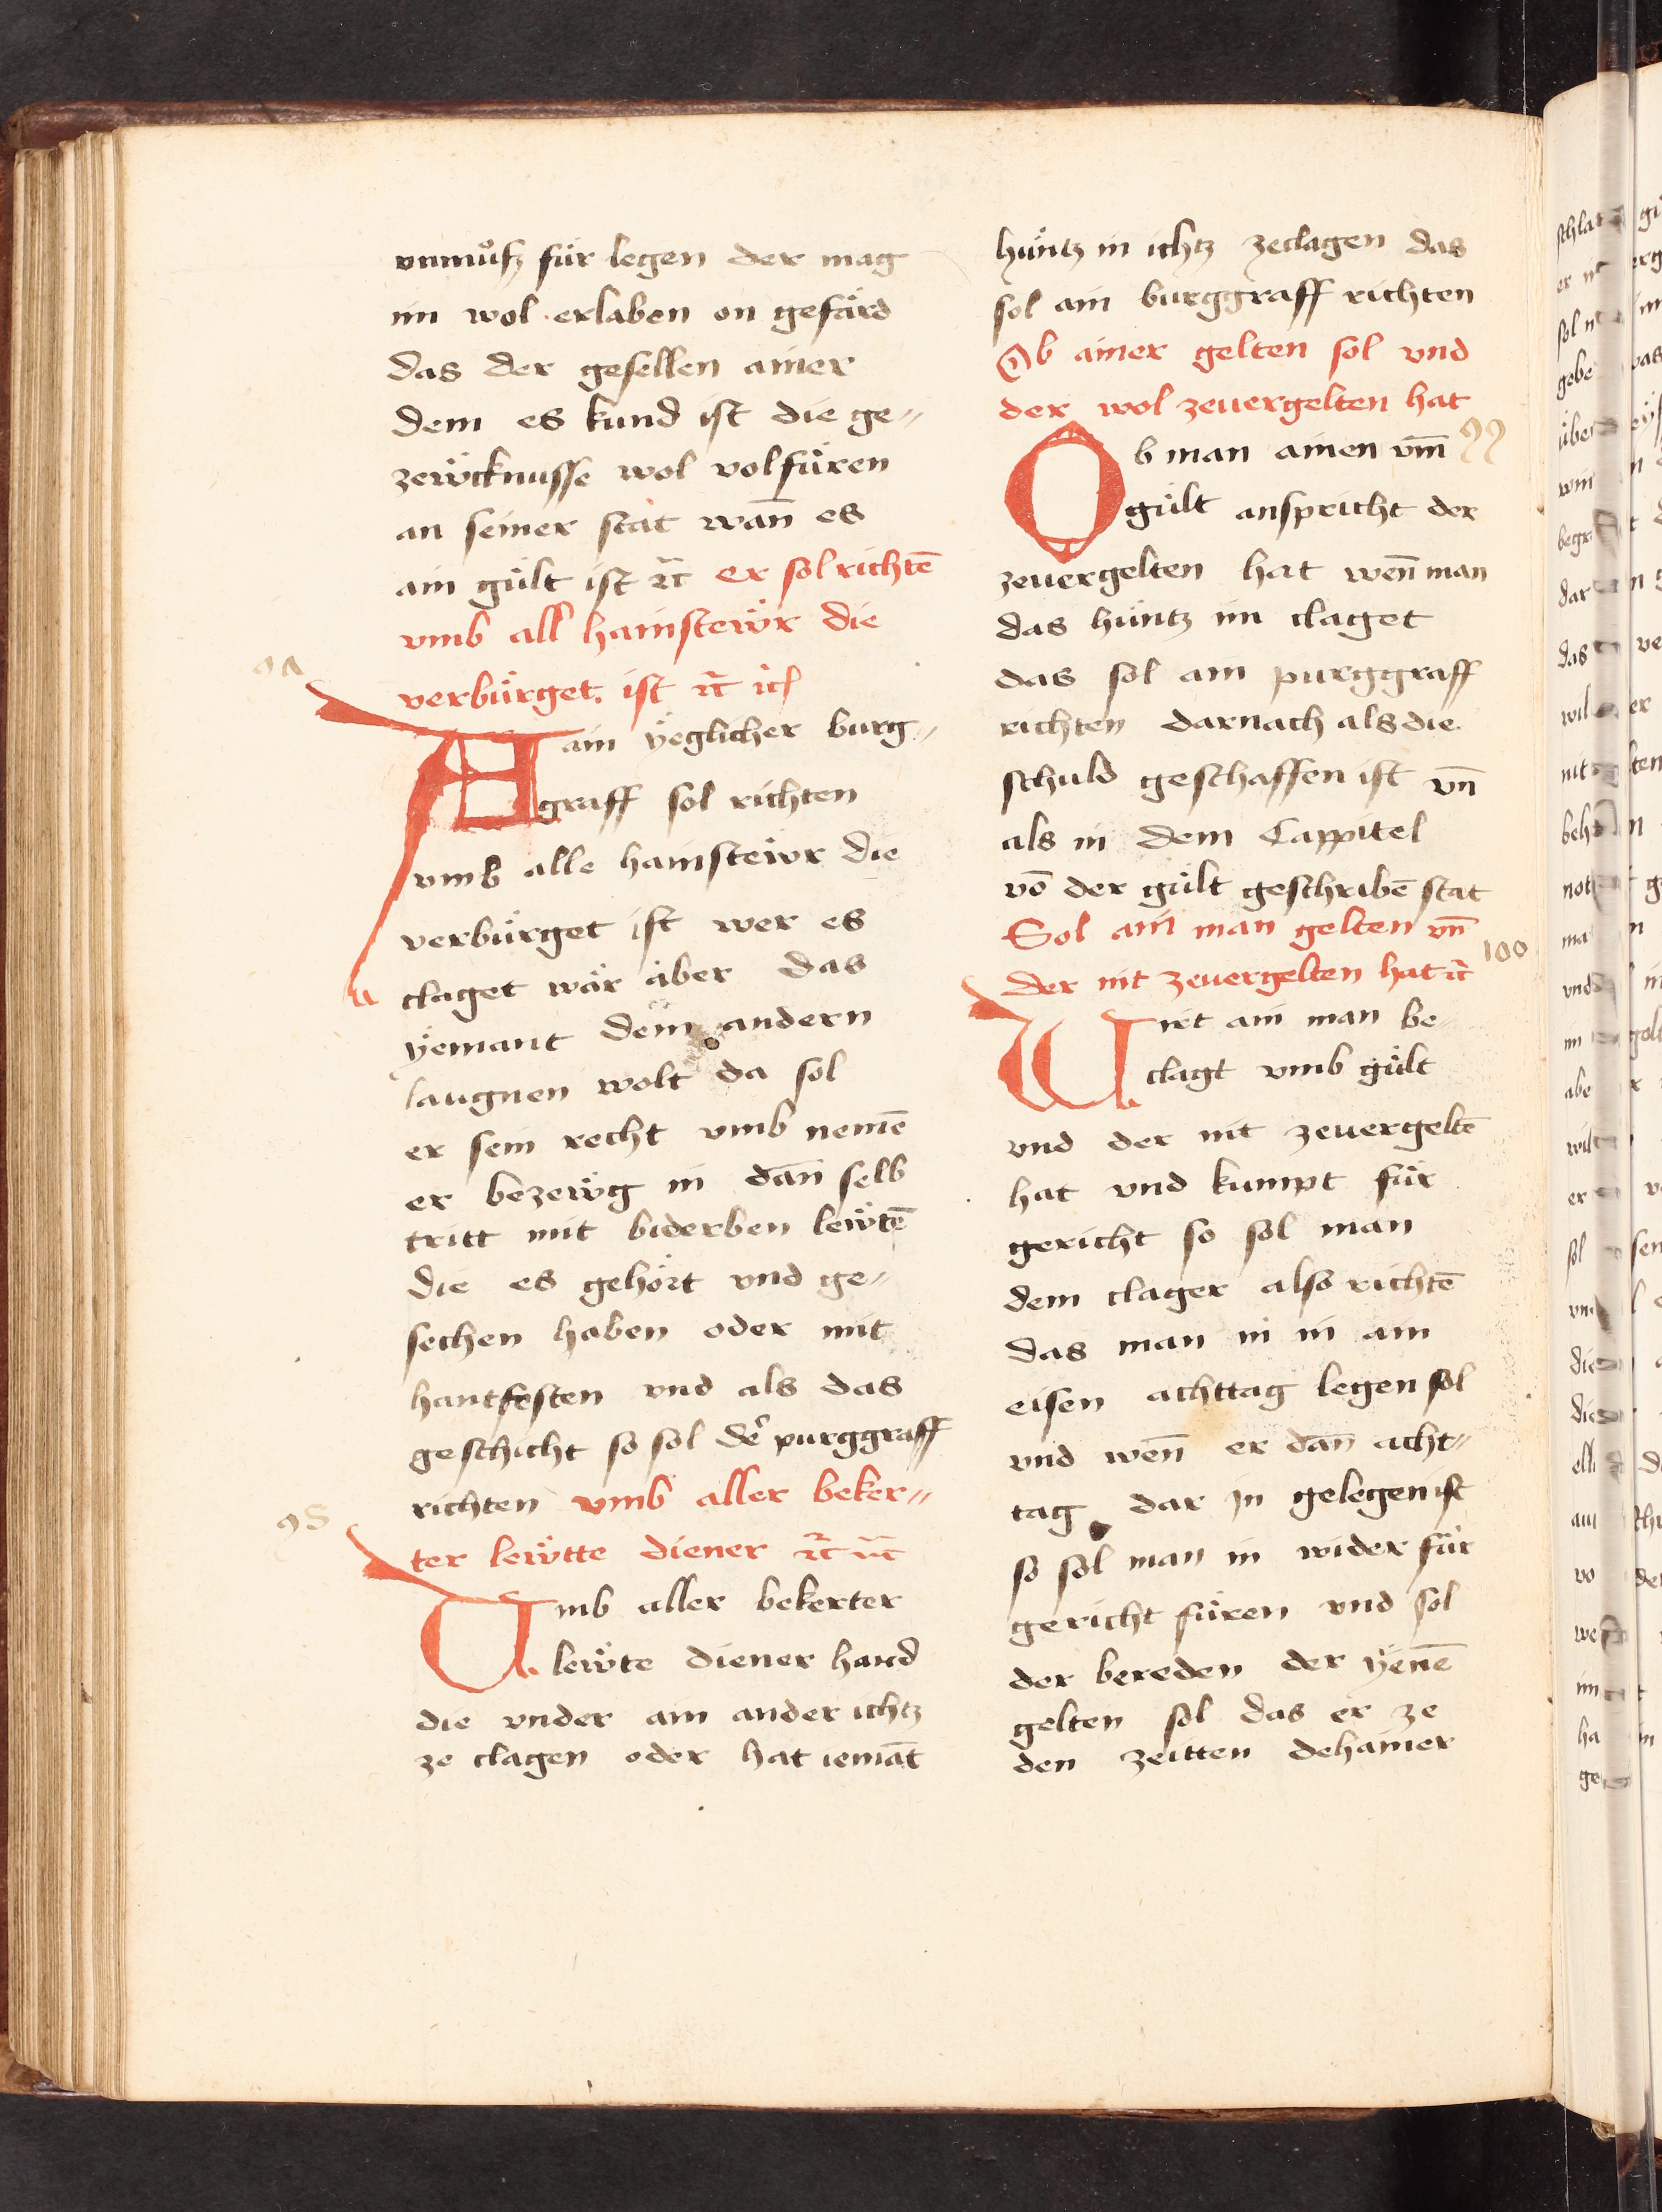 vnmuͦß für legen der mag
im wol erlaben on gefärd
das der gesellen ainer
dem es kund ist die ge„
zewcknusse wol volfüren
an seiner stat wan̄ es
ain gült ist ⁊c̄ er sol richtē
vmb all hainstewr die
verbürget ist ⁊c̄
97
Ain yeglicher burg„
graff sol richten
vmb alle hainstewr die
verbürget ist wer es
claget wär aber das
yemant dem andern
laugnen wolt da sol
er sein recht vmb nemē
er bezewg in dan̄ selb
tritt mit biderben lewtē
die es gehört vnd ge„
sechen haben oder mit
hantfesten vnd als das
geschicht so sol der purggraff
richten vmb aller beker„
98
ter lewtte diener ⁊c̄ ⁊c̄
Vmb aller bekerter
lewte diener hand
die vnder ain ander ichtz
ze clagen oder hat iemāt
hüntz in ichtz zeclagen das
sol ain burggraff richten
Ob ainer gelten sol vnd
der wol zeuergelten hat
99
Ob man ainen vm̄
gült anspricht der
zeuergelten hat wen̄ man
das hüntz im claget
das sol ain purggraff
richten darnach als die
schuld geschaffen ist vn̄
als in dem Cappitel
vō der gült geschribē stat
Sol ain man gelten vn̄
100
der nit zeuergelten hat ⁊c̄
Wirt ain man be„
clagt vmb gült
vnd der nit zeuergeltē
hat vnd kumpt für
gericht so sol man
dem clager also richtē
das man in in ain
eisen achttag legen sol
vnd wen̄ er dan̄ acht„
tag dar jn gelegen ist
so sol man in wider für
gericht füren vnd sol
der bereden der yenē
gelten sol das er ze
den zeitten dehainer